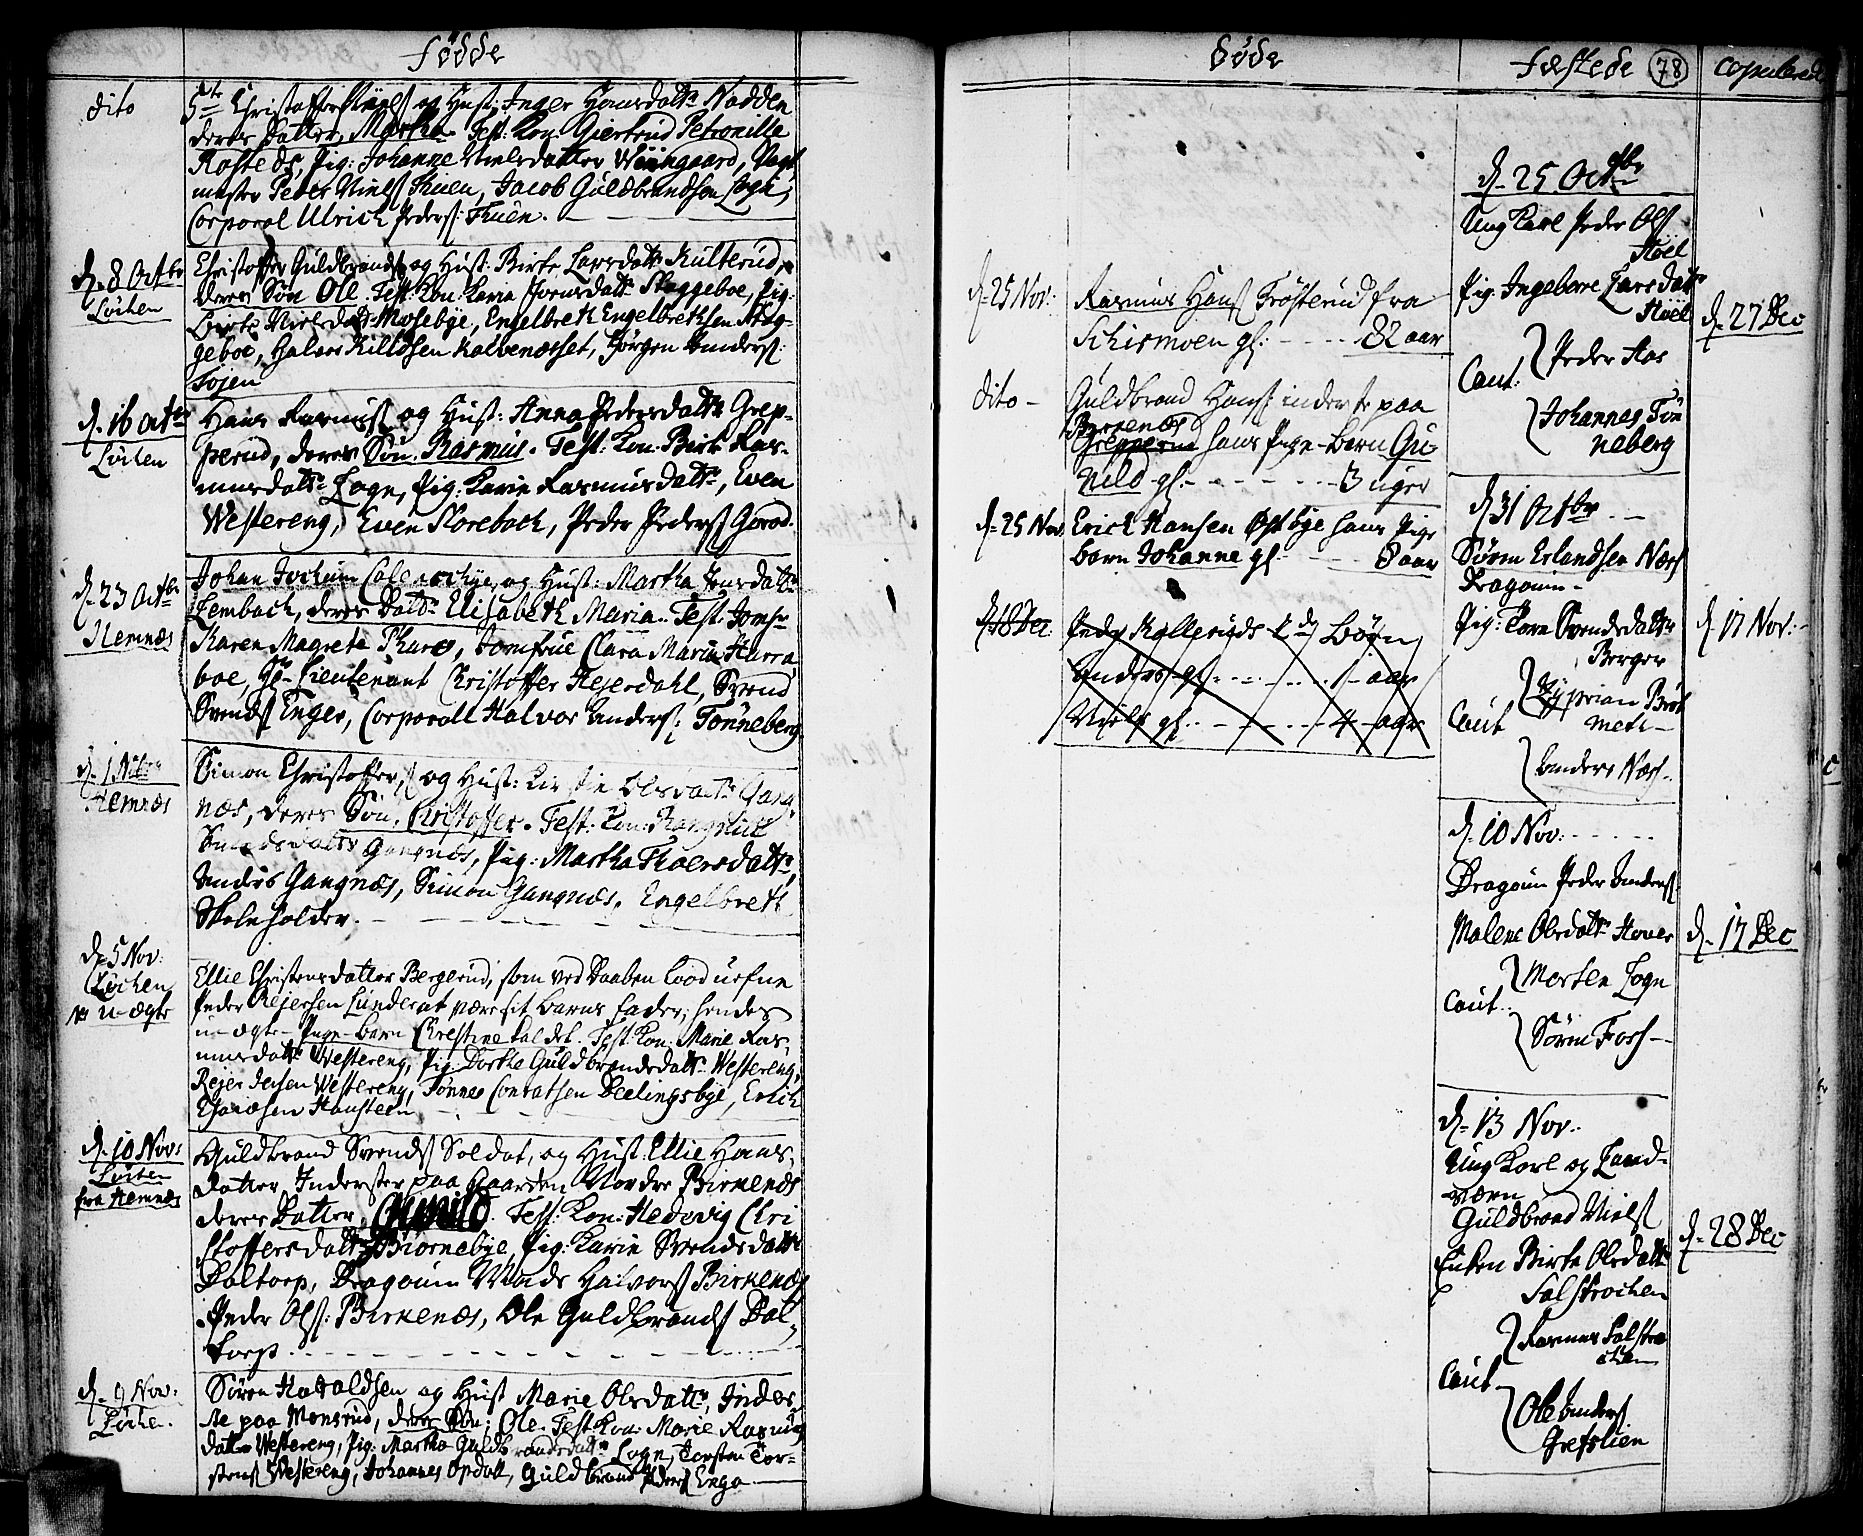 Födde
dito
5te Christoffer Nielsß og Hust: Inger Hansdattr Nadden
deres Datter, Martha. Test: Kon: Giertrud Petronille
Rosteds, Pig: Johanne Nielsdatter Wiingaard, Vagt
mester Peder Nielsß Thuen, Jacob Guldbrandsen Logn,
Corporal Ulrich Pedersß: Thuen.
d. 8 Octbr
Löchen
Christoffer Guldbrandsß og Hust: Birte Larsdattr Kulterud,
deres Sön Ole. Test: Kon: Karia Joensdattr Skaggeboe, Pig:
Birte Nielsdattr Mosebye, Engelbreth Engelbrethsen Skag-
geboe, Halvor Killdsen Kalvenæsset, Jörgen Andersß:
Tojen
d. 16 Octbr
Löchen
Hans Rasmusß og Hust: Anna Pedersdattr Grep-
perud, deres Sön Rasmus. Test: Kon: Birte Ras-
musdattr Logn, Pig: Karin Rasmusdattr, Even
Westereng, Even Slorebach, Peder Pedersß Gorod.
d. 23 Octbr
Hemnæs
Johan Jochum og Hust: Martha Jensdattr
Lembach, deres Dattr Elisabeth Maria. Test: Jomfr
Karen Magrete Thurs, Jomfrue Clara Maria Harra
boe, Hr Lieutenant Christoffer Hejerdahl, Svend
Svendsß Enger, Corporall Halvor Andersß: Tönneberg
d. 1 Nov
Hemnæs
Simon Christoffersß og Hust: Kirstie Olsdattr Gang
næs, deres Sön, Christoffer. Test: Kon: Rangnild
Svendsdattr Gangnæs, Pig: Martha Thoersdattr,
Anders Gangnæs, Simon Gangnæs, Engelbrett
Skoleholder.
d. 5 Nov:
Löchen
u-ægte
Ellie Christensdatter Bergerud, som ved Daaben lood uefne
Peder Rejersen Lunder at være sit Barns fader, hendes
u-ægte Pige-Barn Chrestine kaldet. Test: Kon: Marie Ras,
musdattr Westereng, Pig Dorthe Guldbrandsdattr Westereng,
Rejer Jensen Westereng, Tönnes Conratsen Deelingsbye, Erich
Hansteen
d. 10 Nov:
Löchen
fra Hemnæs
Guldbrand Svendsß Soldat, og Hust: Ellie Hans,
datter, Inderster paa Gaarden Nordre Birkenæs
deres Datter, Gunild. Test: Kon: Hedevig Chri
stoffersdattr Biörnebye, Pig: Karin Svendsdattr
Daltorp, Dragoun Mads Halvorsß Birkenæs
Peder Olsß: Birkenæs, Ole Guldbrandsß Dal,
torp.
d. 9 Nov:
Löchen.
Sören Haraldsen og Hust Marie Olsdattr, Inder,
ste paa Monsrud, deres Sön: Ole. Test Kon: Marie Rasmus
datter Westereng, Pig: Martha Guldbrandsdattr Logn, Torsten Tor-
stensß Westereng, Johannes Opdalt, Guldbrand Pedersß Enge
döde
d. 25 Nov:
Rasmus Hansß Trösterud fra
Schismoen gl: - - - - 82 aar
dito -
Guldbrand Hansß inderste paa
Birkenæs
Grepperu hans Pige-Barn Gu
nild gl. - - - - - - 3 uger
d. 25 Nov.
Erich Hansen Östbye hans Pige
barn Johanne gl - - - 8 aar
d. 18 Dec:
Peder Kollerüds 2de Börn
Anders gl. - - - - - 1 - aar
Niels gl. - - - - - 4 - aar
fæstede
78
d. 25 Octbr
Ung Karl Peder Olsß
Höel
Pig: Ingebore Larsdattr
Höel
Caut:
Peder Aas
Johannes Tön
neberg
d 31 Octbr
Sören Erlandsen Næss
Dragoun
Pig: Karn Svendsdattr
Berger
Caut
Zyprian Bröt
meth
Anders Næss.
d. 10 Nov:
Dragoun Peder Andersß
Malene Olsdattr Hover
Caut.
Morten Logn
Sören Foss-
d. 13 Nov.
Ung Karl og Land-
værn
Guldbrand Nielsß
Enken Birte Olsdattr
Salstrochen
Caut
Rasmus Salstro
chen
Ole Andersß
Grefslien
copulerede
d. 27 Dec
d. 17 Nov:
d. 17 Dec
d. 28 Dec